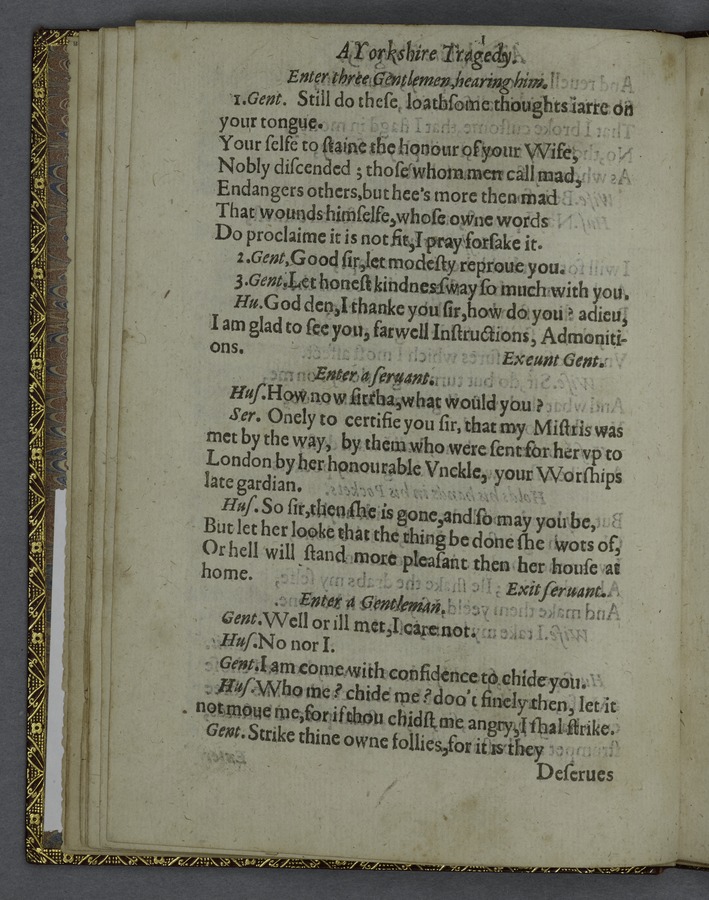 A Yorkshire Tragedy.
Enter three Gentlemen, hearing him.
1.Gent. Still do theſe, loathſome thoughts iarre on
your tongue.
Your ſelfe to ſtaine the honour of your VVife,
Nobly diſcended ; thoſe whom men call mad,
Endangers others,but hee's more then mad
That wounds himſelfe,whoſe owne words
Do proclaime it is not fit,I pray forſake it.
2.Gent,Good ſir,let modeſty reproue you.
3.Gent.Let honeſt kindnes ſway ſo much with you.
Hu.God den,I thanke you ſir,how do you ? adieu,
I am glad to ſee you, farwell Inſtructions, Admoniti-
ons. Exeunt Gent.
Enter a ſeruant.
Huſ.How now ſirrha,what would you ?
Ser. Onely to certifie you ſir, that my Miſtris was
met by the way, by them who were ſent for her vp to
London by her honourable Vnckle, your VVorſhips
late gardian.
Huſ.So ſir,then ſhe is gone,and ſo may you be,
But let her looke that the thing be done ſhe wots of,
Or hell will ſtand more pleaſant then her houſe at
home. Exit ſeruant.
Enter a Gentleman.
Gent.VVell or ill met,I care not.
Huſ.No nor I.
Gent.I am come with confidence to chide you.
Huſ.VVho me ? chide me ? doo't finely then, let it
not moue me,for if thou chidſt me angry,I ſhal ſtrike.
Gent. Strike thine owne follies,for it is they
Deſerues